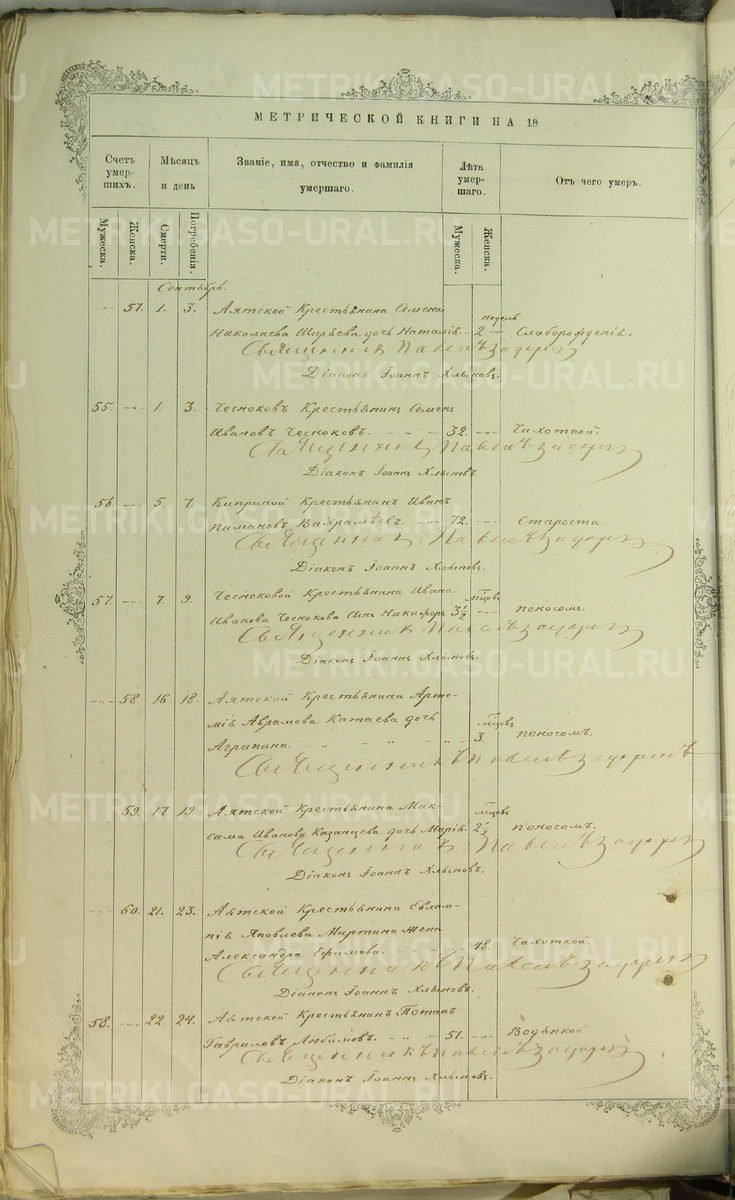 МЕТРИЧЕСКОЙ КНИГИ НА 18
Счетъ умер- шихъ.
Мѣсяцъ и день
Званіе, имя, отчество и фамилія умершаго.
Лѣта умер- шаго.
Отъ чего умеръ.
Мужеска.
Женска.
Смерти.
Погребенія.
Мужеска.
Женска.
Сентябрь.
57. 1. 3. Аятской Крестьянина Семена недель
Николаева Ширѣева дочь Наталія 2 Слаборожденія.
Священникъ Павелъ
Діаконъ Іоаннъ Хлыновъ.
55. 1. 3. Чесноковъ Крестьянинъ Семенъ
Ивановъ Чесноковъ. 32. Чахоткой.
Священникъ Павелъ
Діаконъ Іоаннъ Хлыновъ.
56. 5 7. Крестьянинъ Иванъ
Вахрамѣевъ. 72. Старости
Священникъ Павелъ
Діаконъ Іоаннъ Хлыновъ.
57. 7. 9. Чесноковой Крестьянина Ивана мѣцовъ
Иванова Чеснокова сынъ Никифоръ 3½ поносомъ.
Священникъ Павелъ
Діаконъ Іоаннъ Хлыновъ.
58. 16. 18. Аятской Крестьянина Арте-
мія Аврамова Катаева дочь мѣцовъ
Агрипина. 3. поносомъ.
Священникъ Павелъ
59. 17 19. Аятской Крестьянина Мак- мѣцовъ
сима Иванова Казанцева дочь Марія. 2½ поносомъ.
Священникъ Павелъ
Діаконъ Іоаннъ Хлыновъ.
60. 21. 23. Аятской Крестьянина Евлам-
пія Яковлева Мартина жена
Александра Ефимова. 48. Чахоткой.
Священникъ Павелъ
Діаконъ Іоаннъ Хлыновъ.
58. 22. 24. Аятской Крестьянинъ Потапъ
Гавриловъ Любимовъ. 51. Водянкой
Священникъ Павелъ
Діаконъ Іоаннъ Хлыновъ.
METRIKI.GASO-URAL.RU